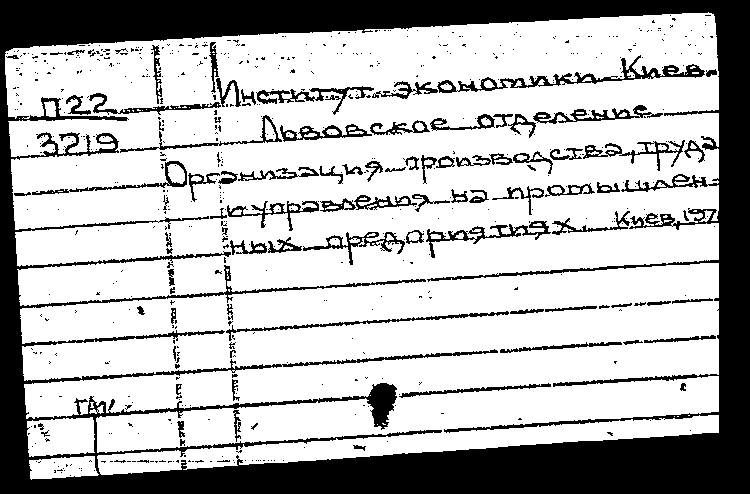 П22
3219
Институт экономики. Киев.
Львовское отделение.
Организация производства, труда
и управления на промышлен-
ных предприятиях. Киев, 197